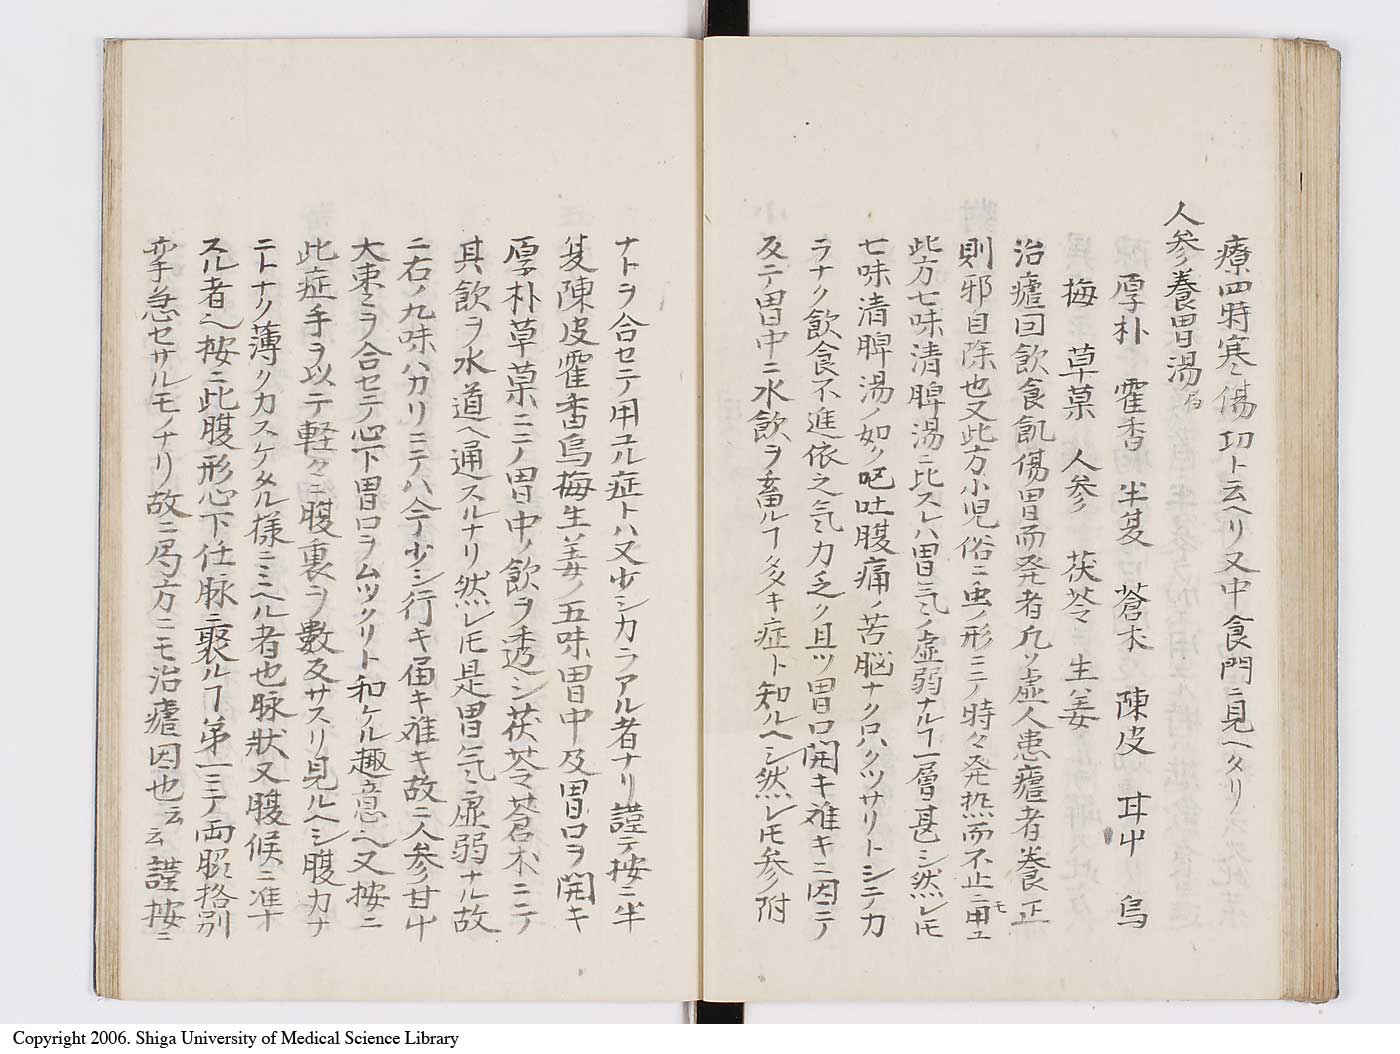 療四時寒傷切ト云ヘリ又中食門ニ見ヘタリ
人参養胃湯 局
厚朴 霍香 半夏 蒼朮 陳皮 耳屮 烏
梅 草菓 人参 茯苓 生姜
治瘧回飲食飢傷胃而発者凡ソ虚人患瘧者養正
則邪自除也又此方小児俗ニ虫ノ形ニノ時々発热而不止ニモ用ユ
此方七味清脾湯ニ比スレハ胃気ノ虚弱ナルヿ一層甚シ然レモ
七味清脾湯ノ如ク呕吐腹痛ノ苦脳ナク只クツサリトシテカ
ラナク飲食不進依之気力乏ク且ツ胃口開キ难キニ因テ
及テ胃中ニ水飲ヲ畜ルヿ多キ症ト知ルヘシ然レモ参附
ナトヲ合セテ用ユル症トハ又少シカラアル者ナリ謹テ按ニ半
夏陳皮霍香烏梅生姜ノ五味胃中及胃口ヲ開キ
厚朴草菓ニニノ胃中ノ飲ヲ透シ茯苓蒼朮ニニテ
其飲ヲ水道ヘ通スルナリ然レモ是胃気ミ虚弱ナル故
ニ右ノ九味ハカリニテハ今少シ行キ届キ难キ故ニ人参甘屮
大棗ミラ合セテ心下胃口ヲムツクリト和ケル趣意ヘ又按ニ
此症手ヲ以テ軽々ニ腹裏ヲ数反サスリ見ルヘシ腹力ナ
ニトナク薄クカスケタル様ニミヘル者也脉状又腹候ニ准ナ
スル者ヘ按ニ此腹形心下任脉ニ聚ルヿ第一ミテ両脇挌別
孪急セサルモノナリ故ニ局方ニモ治瘧因也云云謹按ニ
Copyright 2006. Shiga University of Medical Science Library